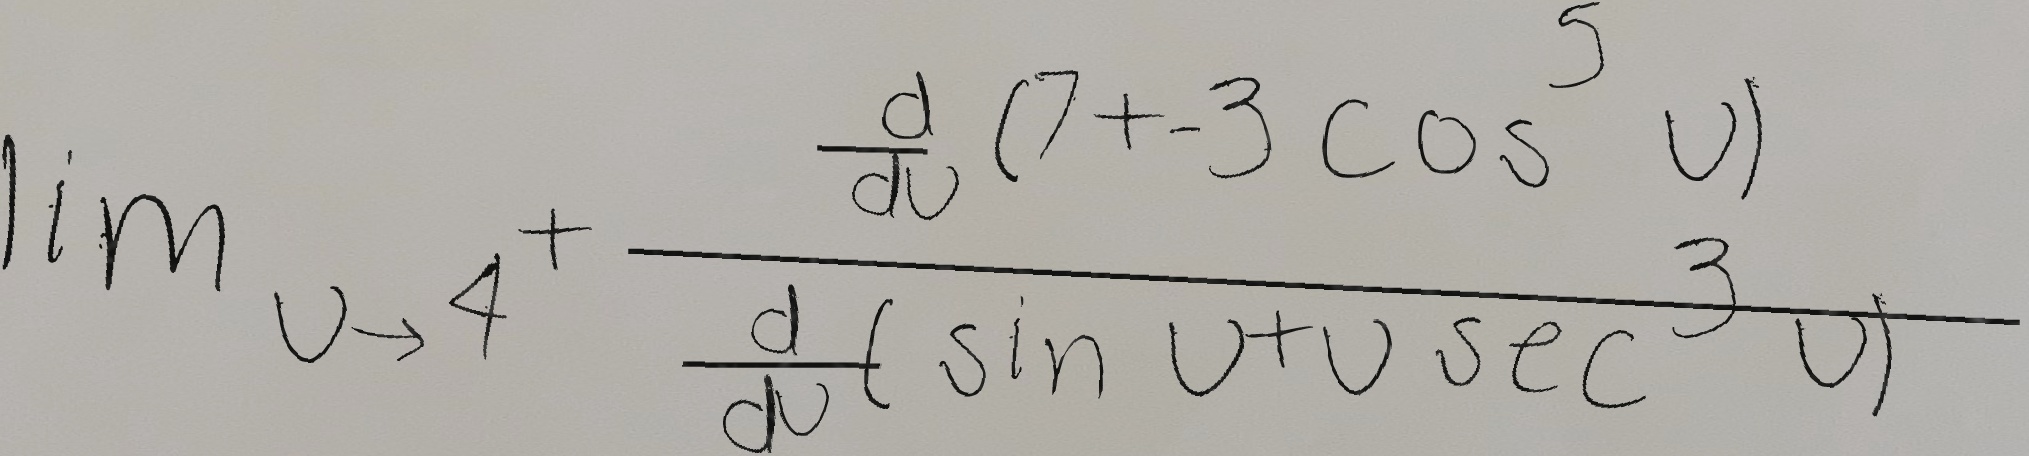 \lim_{v \to 4^+} \frac{\frac{d}{dv}(7 + -3 \cos^5 v)}{\frac{d}{dv}(\sin v + v \sec^3 v)}